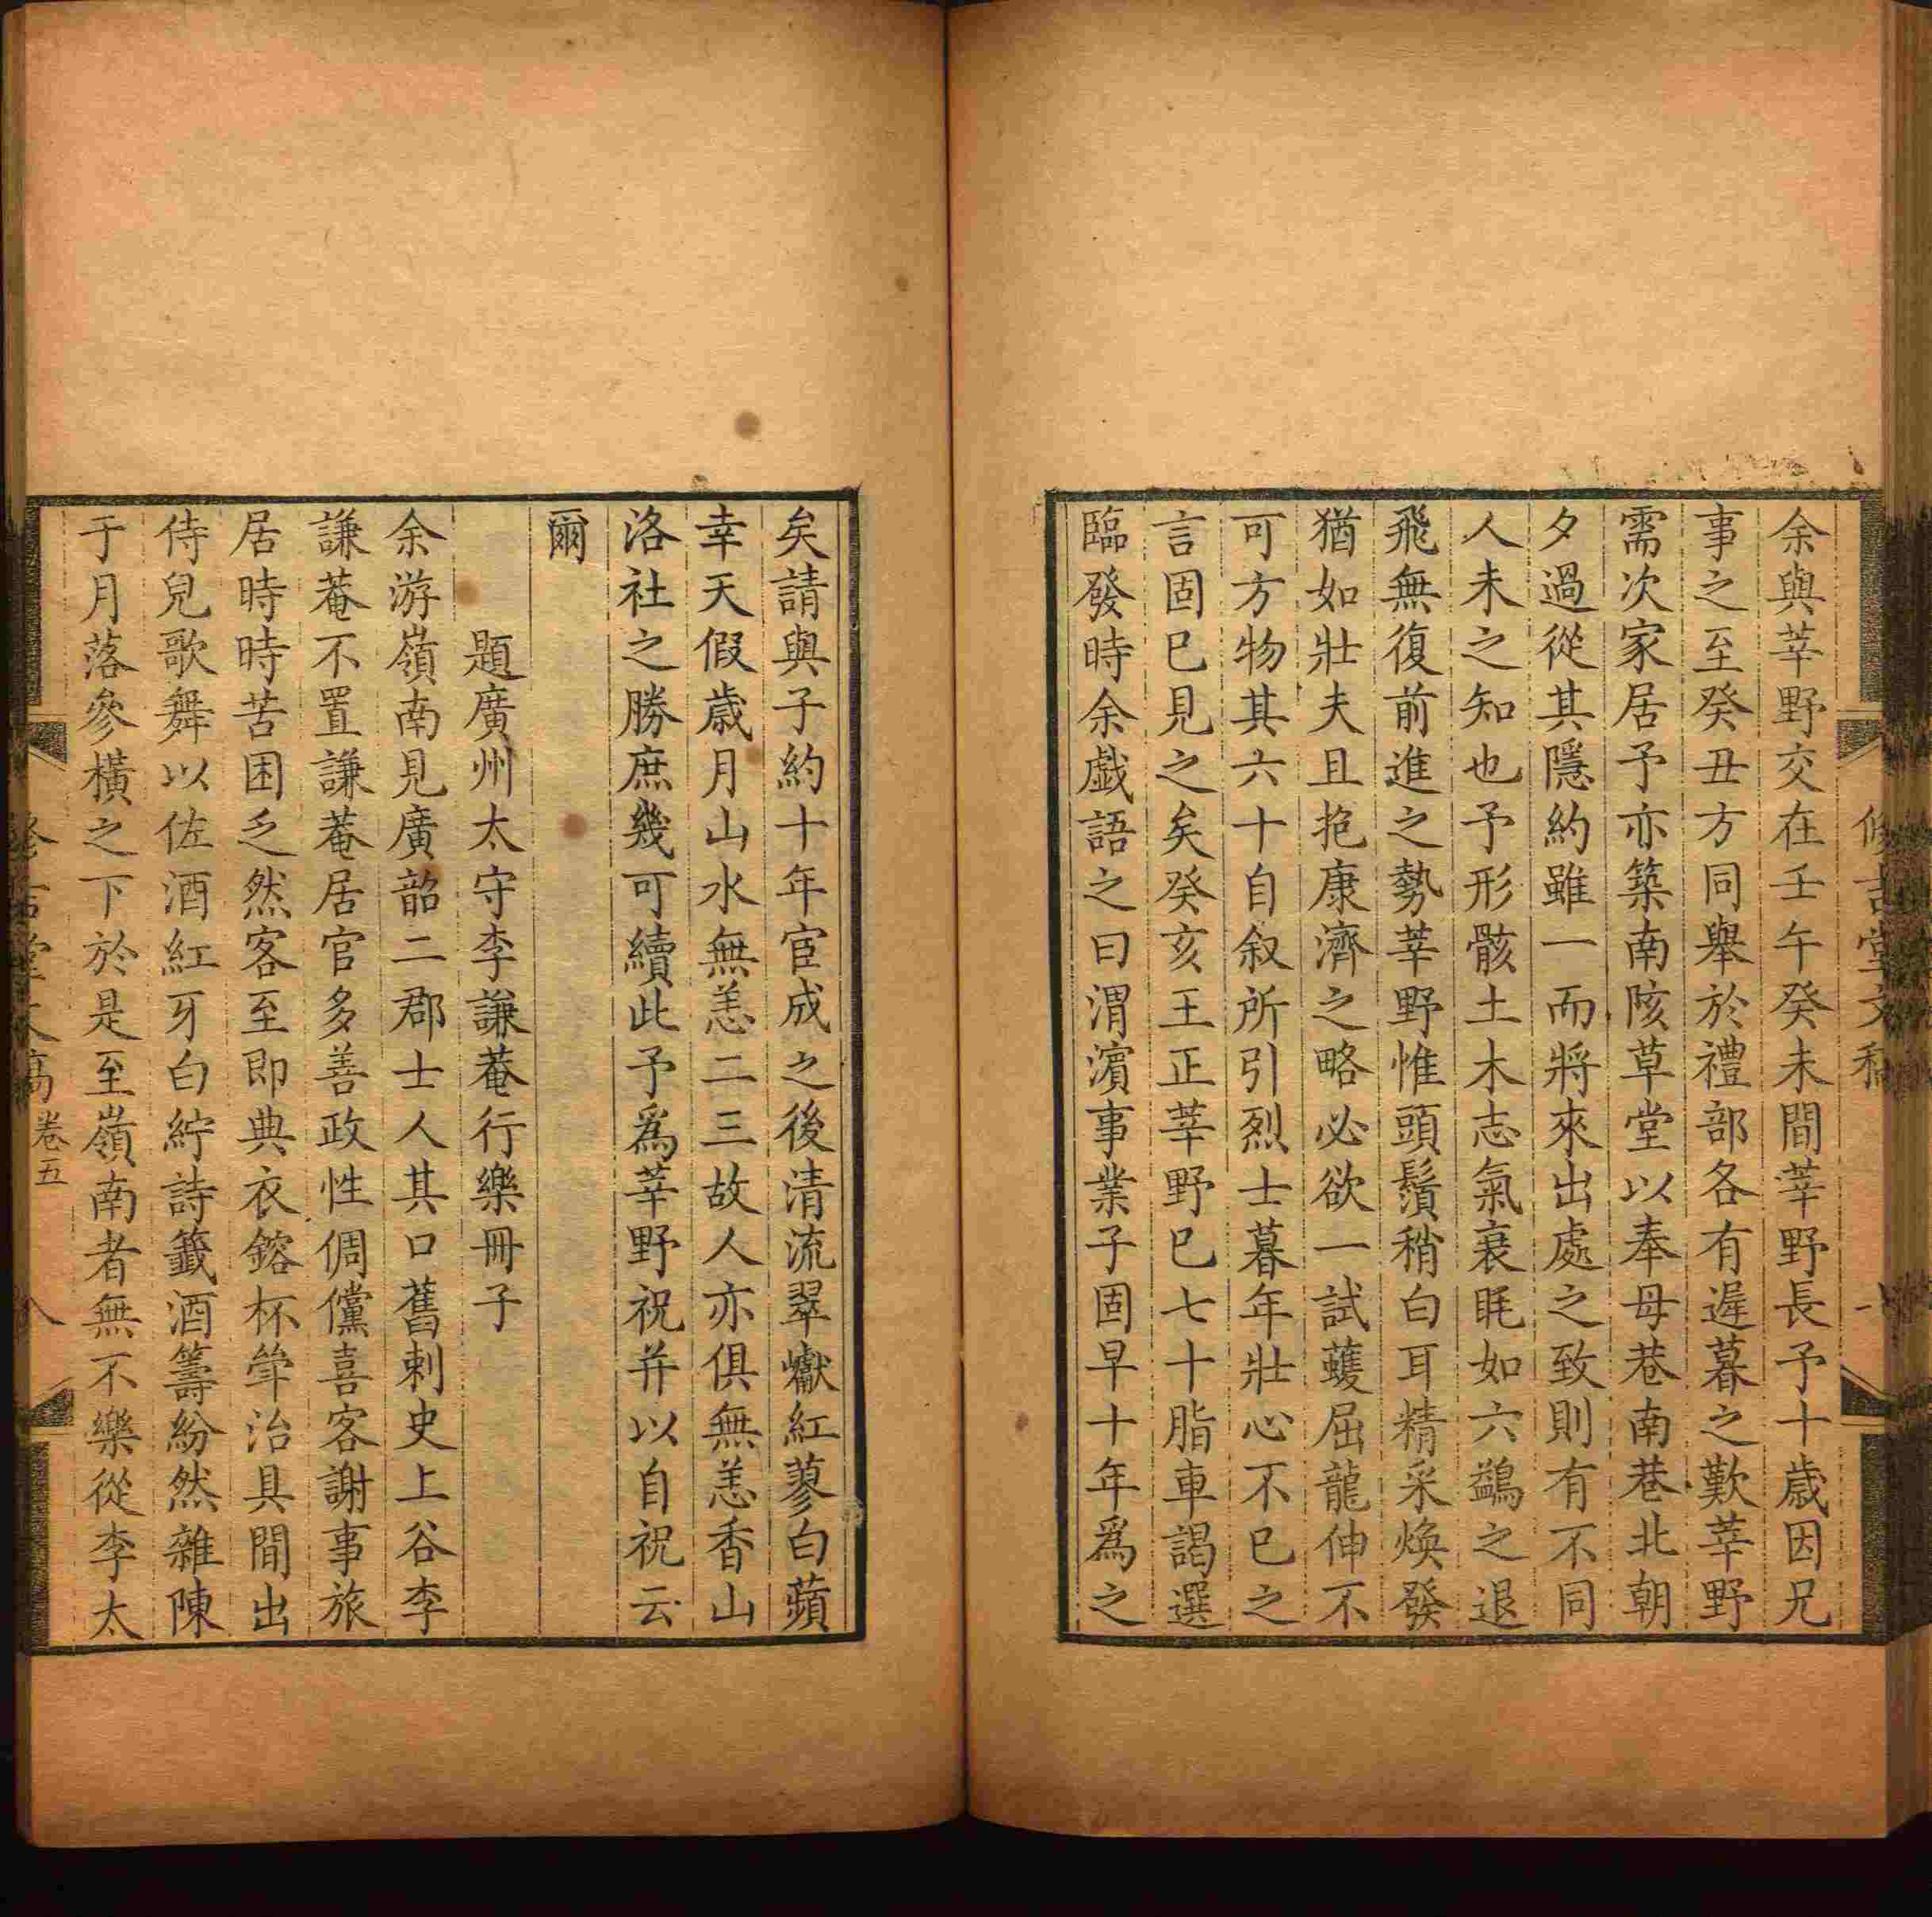 余與莘野交在壬午癸未間莘野長予十歲因兄
事之至癸丑方同舉於禮部各有遲暮之歎莘野
需次家居予亦築南陔草堂以奉母巷南巷北朝
夕過從其隱約雖一而將來出處之致則有不同
人未之知也予形骸土木志氣衰眊如六鷁之退
飛無復前進之勢莘野惟頭鬚稍白耳精采煥發
猶如壯夫且抱康濟之略必欲一試蠖屈龍伸不
可方物其六十自叙所引烈士暮年壯心不已之
言固已見之矣癸亥王正莘野已七十脂車謁選
臨發時余戯語之曰渭濱事業子固早十年爲之
矣請與子約十年宦成之後清流翠巘紅蓼白蘋
幸天假歲月山水無恙二三故人亦俱無恙香山
洛社之勝庶幾可續此予爲莘野祝并以自祝云
爾
題廣州太守李謙菴行樂冊子
余游嶺南見廣韶二郡士人其口舊刺史上谷李
謙菴不置謙菴居官多善政性倜儻喜客謝事旅
居時時苦困乏然客至即典衣鎔杯斚治具間出
侍兒歌舞以佐酒紅牙白紵詩籤酒籌紛然雜陳
于月落參橫之下於是至嶺南者無不樂從李太
卷五
八